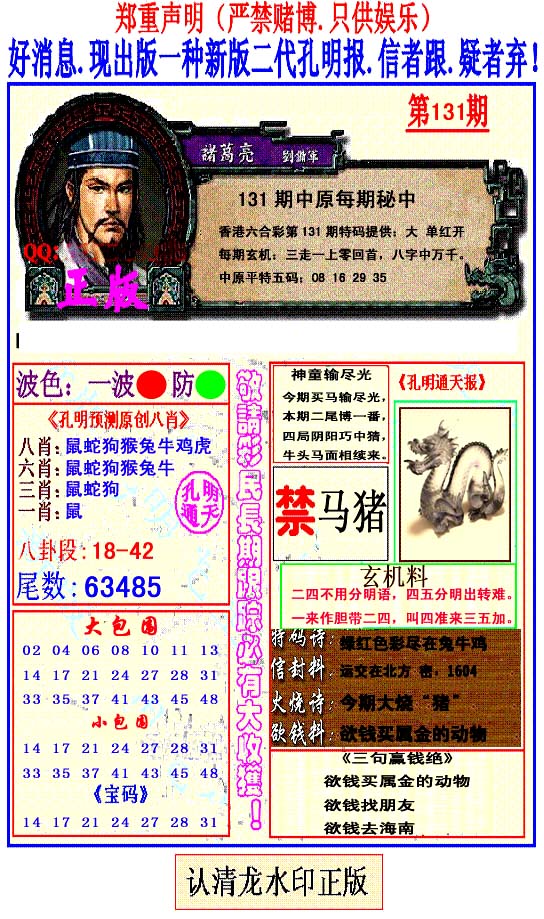 郑重声明（严禁赌博.只供娱乐）
好消息.现出版一种新版二代孔明报.信者跟.疑者弃!
第131期
諸葛亮 劉備軍
131 期中原每期秘中
香港六合彩第 131 期特码提供：大 单红开
每期玄机：三走一上零回首，八字中万千。
中原平特五码：08 16 29 35
QQ:
正版
波色：一波 防
《孔明预测原创八肖》
八肖:鼠蛇狗猴兔牛鸡虎
六肖:鼠蛇狗猴兔牛
三肖:鼠蛇狗
一肖:鼠
孔明
通天
八卦段:18-42
尾数:63485
大包围
02 04 06 08 10 11 13
14 17 21 24 27 28 31
33 35 37 41 43 45 48
小包围
14 17 21 24 27 28 31
33 35 37 41 43 45 48
《宝码》
14 17 21 24 27 28 31
敬請彩民長期跟踪必有大收獲！
神童输尽光
今期买马输尽光，
本期二尾博一番，
四局阴阳巧中猪，
牛头马面相续来。
《孔明通天报》
禁马猪
玄机料
二四不用分明语，四五分明出转难。
一来作胆带二四，叫四准来三五加。
特码诗：绿红色彩尽在兔牛鸡
信封料：运交在北方 密．1604
火烧诗：今期大烧“猪”
欲钱料：欲钱买属金的动物
《三句赢钱绝》
欲钱买属金的动物
欲钱找朋友
欲钱去海南
认清龙水印正版